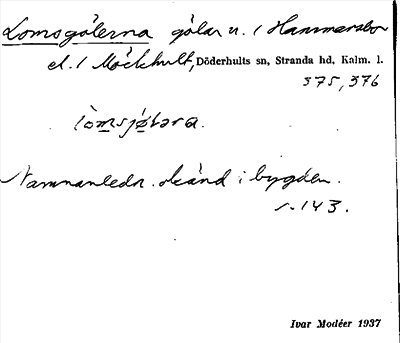 Lomsgölerna gölar n. i Hammarsbo
el. i Möckhult, Döderhults sn, Stranda hd, Kalm. l.
375, 376
lòmsjø̀lǝra.
Namnanledn. okänd i bygden.
s. 143.
Ivar Modéer 1937